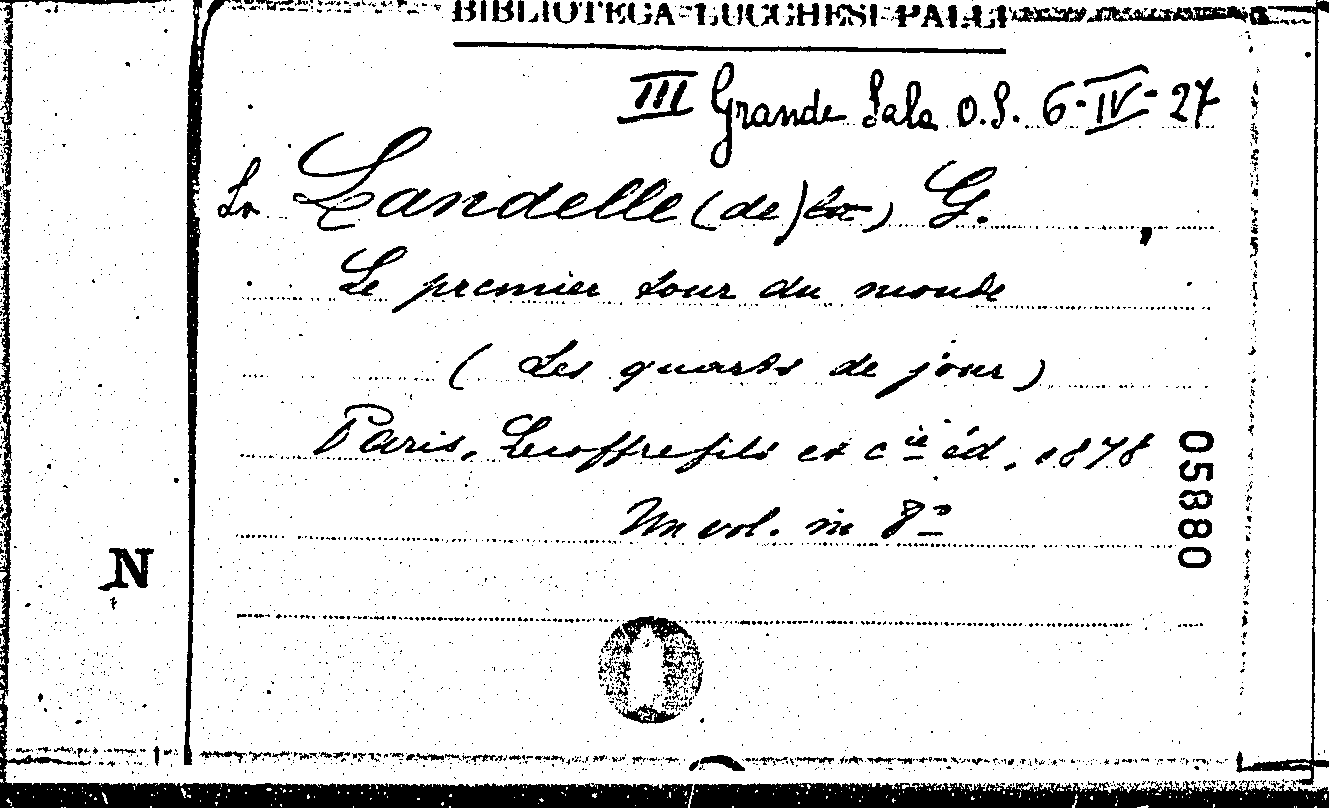 BIBLIOTECA LUCCHESI PALLI
III Grande Sala O.S. 6-IV-27
La Landelle (de) la) G.
Le premier tour du monde
(Les quarts de jour)
Paris, Lecoffre fils et cie éd, 1878
Un vol. in 8º
05880
N